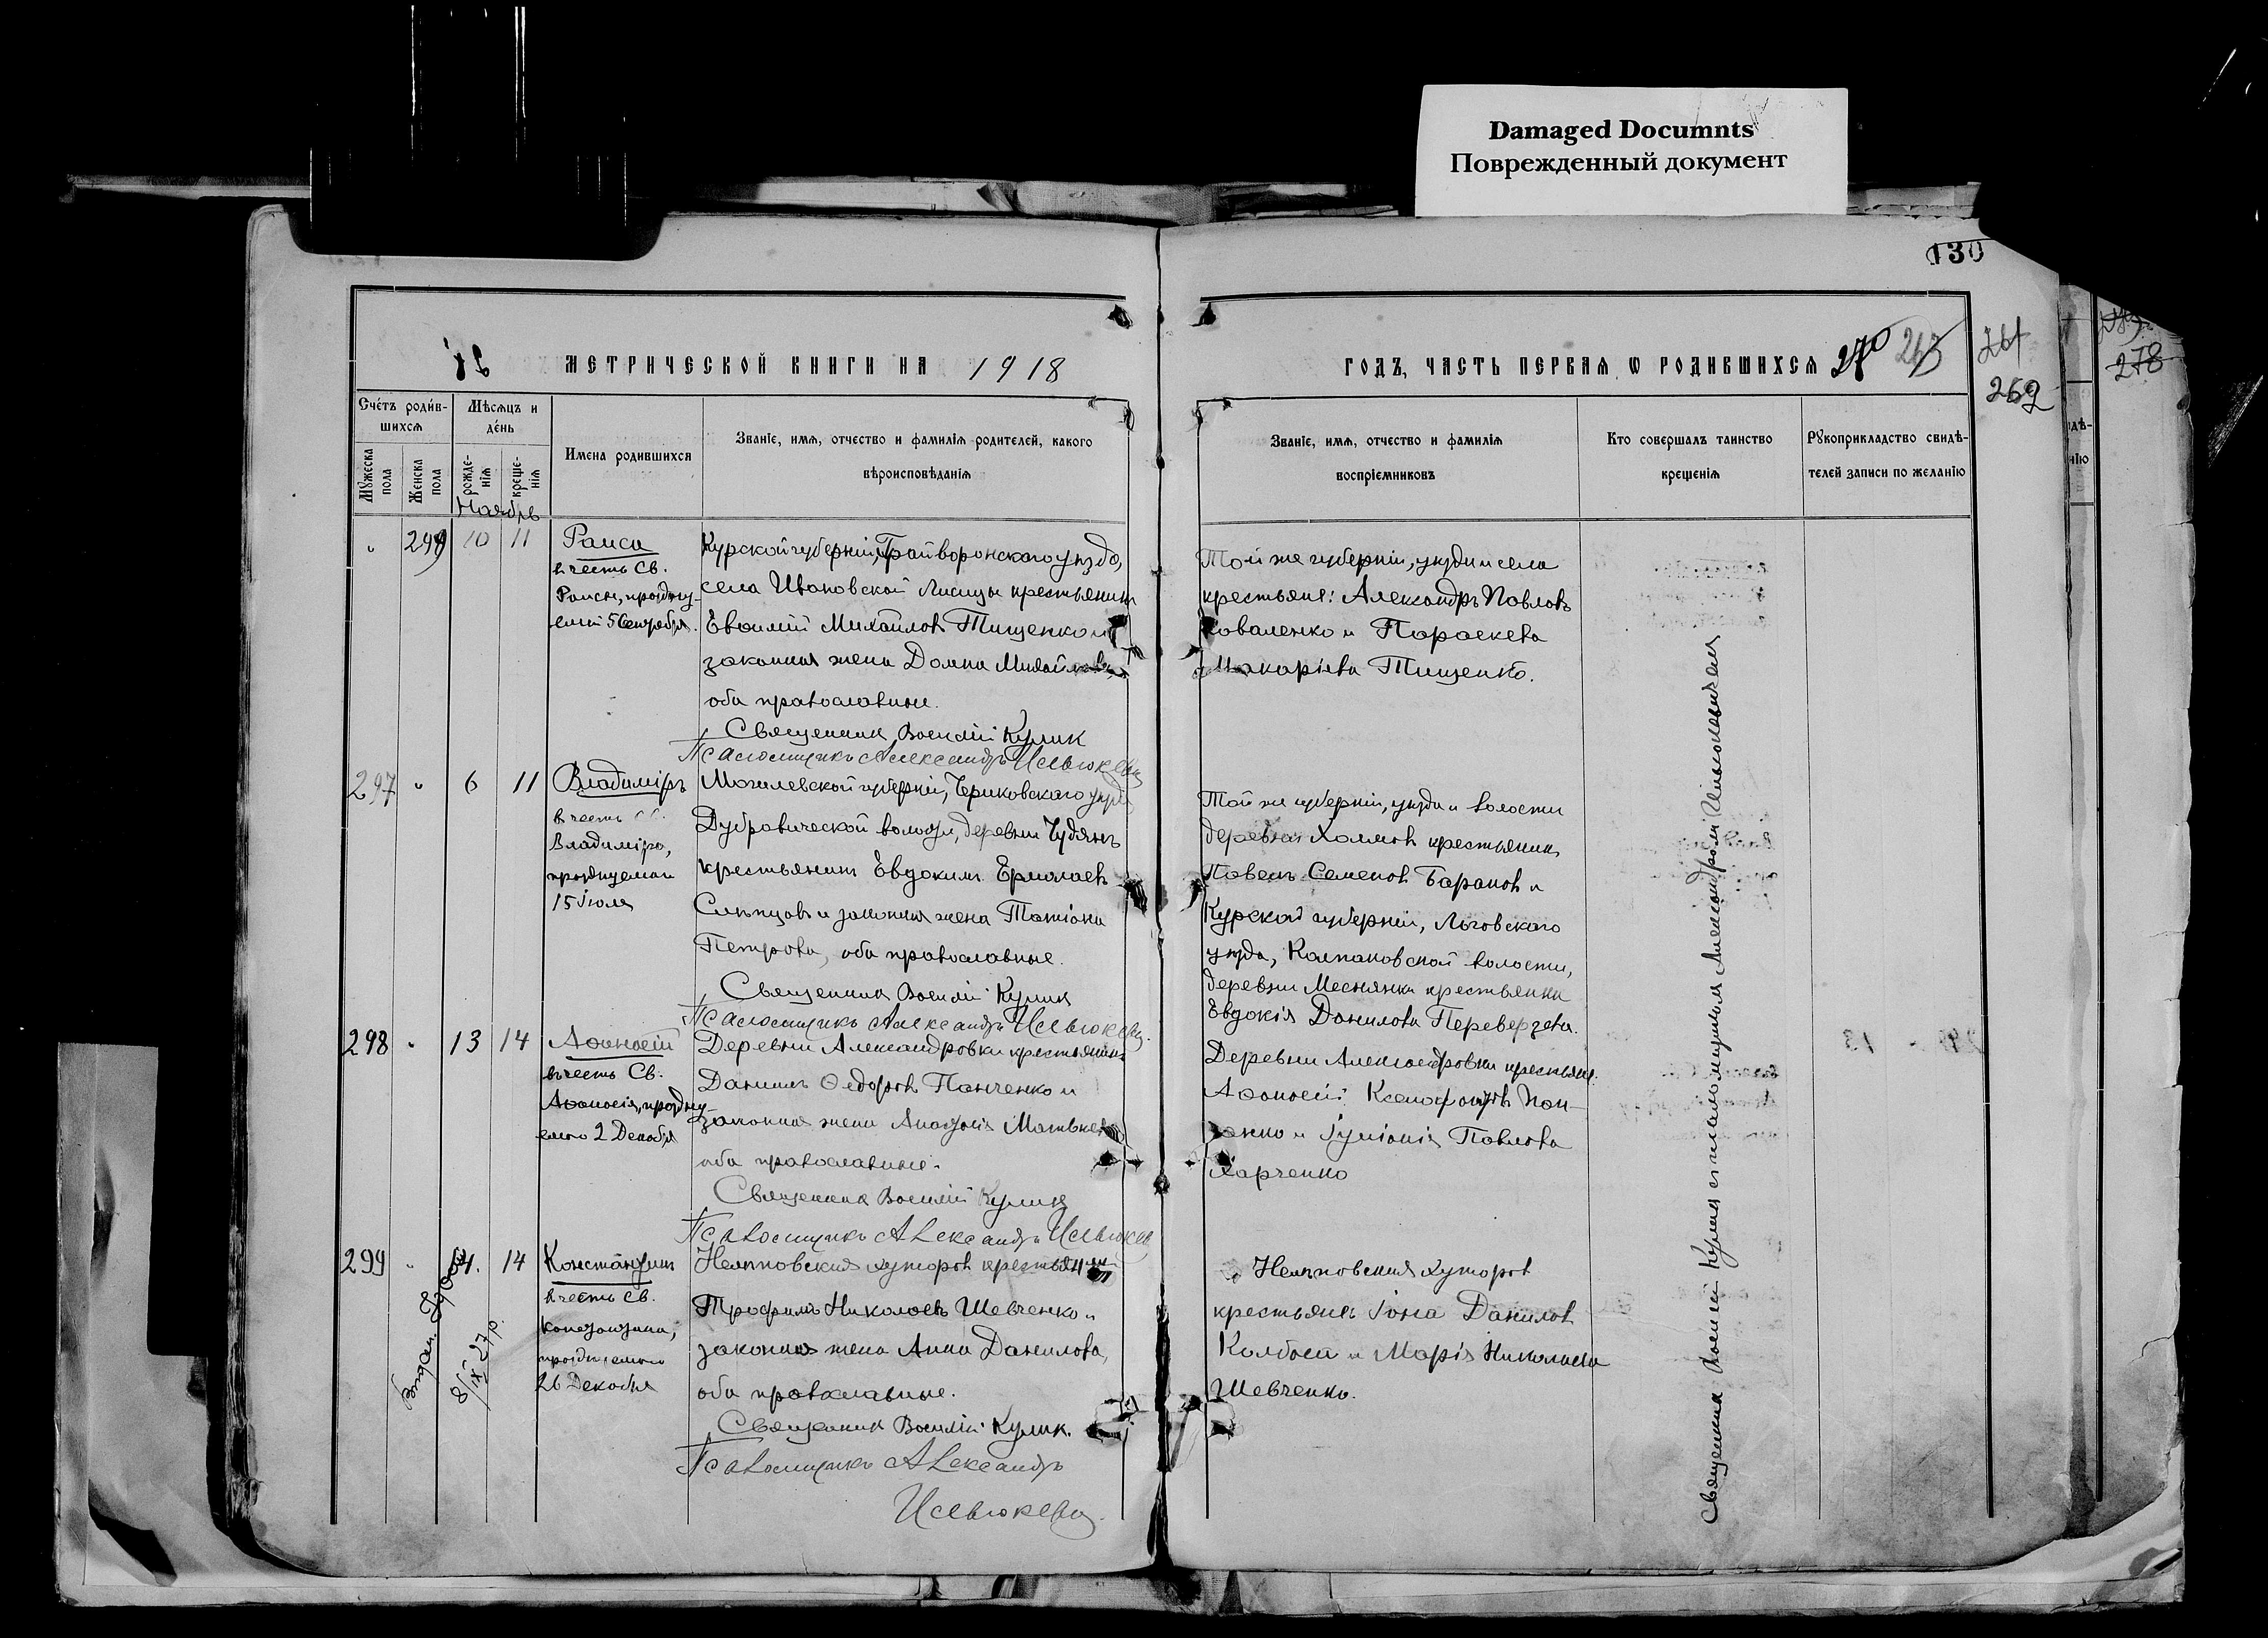 Damaged Documnts
Поврежденный документ
130
МЕТРИЧЕСКОЙ КНИГИ НА 1918
ГОДЪ, ЧАСТЬ ПЕРВАЯ, Ѡ РОДИВШИХСЯ 270
262
278
Сче́тъ роди́в-
шихся
Мѣсяцъ и
де́нь
Мꙋжеска
пола
Женска
пола
рожде-
нія
креще-
нія
Имена родившихся
Званіе, имя, отчество и фамилія родителей, какого
вѣроисповѣданія
Званіе, имя, отчество и фамилія
воспріемниковъ
Кто совершалъ таинство
крещенія
Рꙋкоприкладство свидѣ-
телей записи по желанію
Ноябрь
10 11
Раиса
в честь Св.
Раисы, праздну-
емой 5 Сентября.
Курской губерніи, Грайворонского уѣзда,
села Ивановской Лисицы крестьянинъ
Евѳимій Михайловъ Тищенко и
законная жена Домна Михайлова,
оба православные.
Священник Василій Кулик
Псаломщикъ Александръ
Той же губерніи, уѣзда и села
крестьяне: Александръ Павловъ
Коваленко и Параскева
Макаріева Тищенко.
297 " 6 11
Владиміръ
в честь Св.
Владиміра,
празднуемаго
15 Іюля
Могилевской губерніи, Чериковского уѣзда
Дубровической волости, деревни Чудянъ
крестьянинъ Евдокимъ Ермолаевъ
Слѣпцовъ и законная жена Татіана
Петрова, оба православные.
Священник Василій Кулик
Псаломщикъ Александръ
Той же губерніи, уѣзда и волости
деревни Холмовъ крестьянинъ
Павелъ Семеновъ Барановъ и
Курской губерніи, Льговского
уѣзда, Колпаковской волости,
деревни Меснянки крестьянка
Евдокія Данилова Переверзева.
298 " 13 14
Аѳанасій
в честь Св.
Аѳанасія, праздну-
емаго 2 Декабря
Деревни Александровки крестьянинъ
Даниилъ Ѳедоровъ Панченко и
законная жена Анастасія Матвѣева
оба православные.
Священник Василій Кулик
Псаломщикъ Александръ
Деревни Александровки крестьяне.
Аѳанасій Ксенофонтовъ Пан-
ченко и Іуліанія Павлова
Харченко
299 " 14
Константинъ
в честь Св.
Константина,
празднуемаго
26 Декабря
8/IX 27 р.
хуторовъ крестьянинъ
Трофимъ Николаевъ Шевченко и
законная жена Анна Данилова,
оба православные.
Священник Василій Кулик.
Псаломщикъ Александръ
хуторовъ
крестьяне Іона Даниловъ
и Марія Николаева
Шевченко.
Священник Василій Кулик с псаломщиком Александром